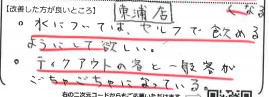 【改善した方が良いところ】 東浦店 なる
。水については、セルフで飲める
ようにして欲しい。
。テイクアウトの客と一般客が
ごちゃごちゃになっている。
右の二次元コードからもご